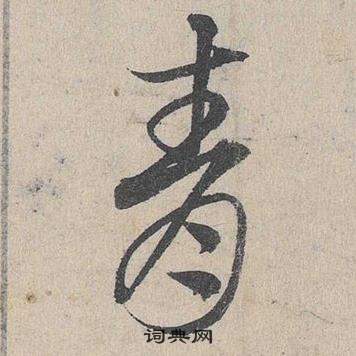 青
词典网